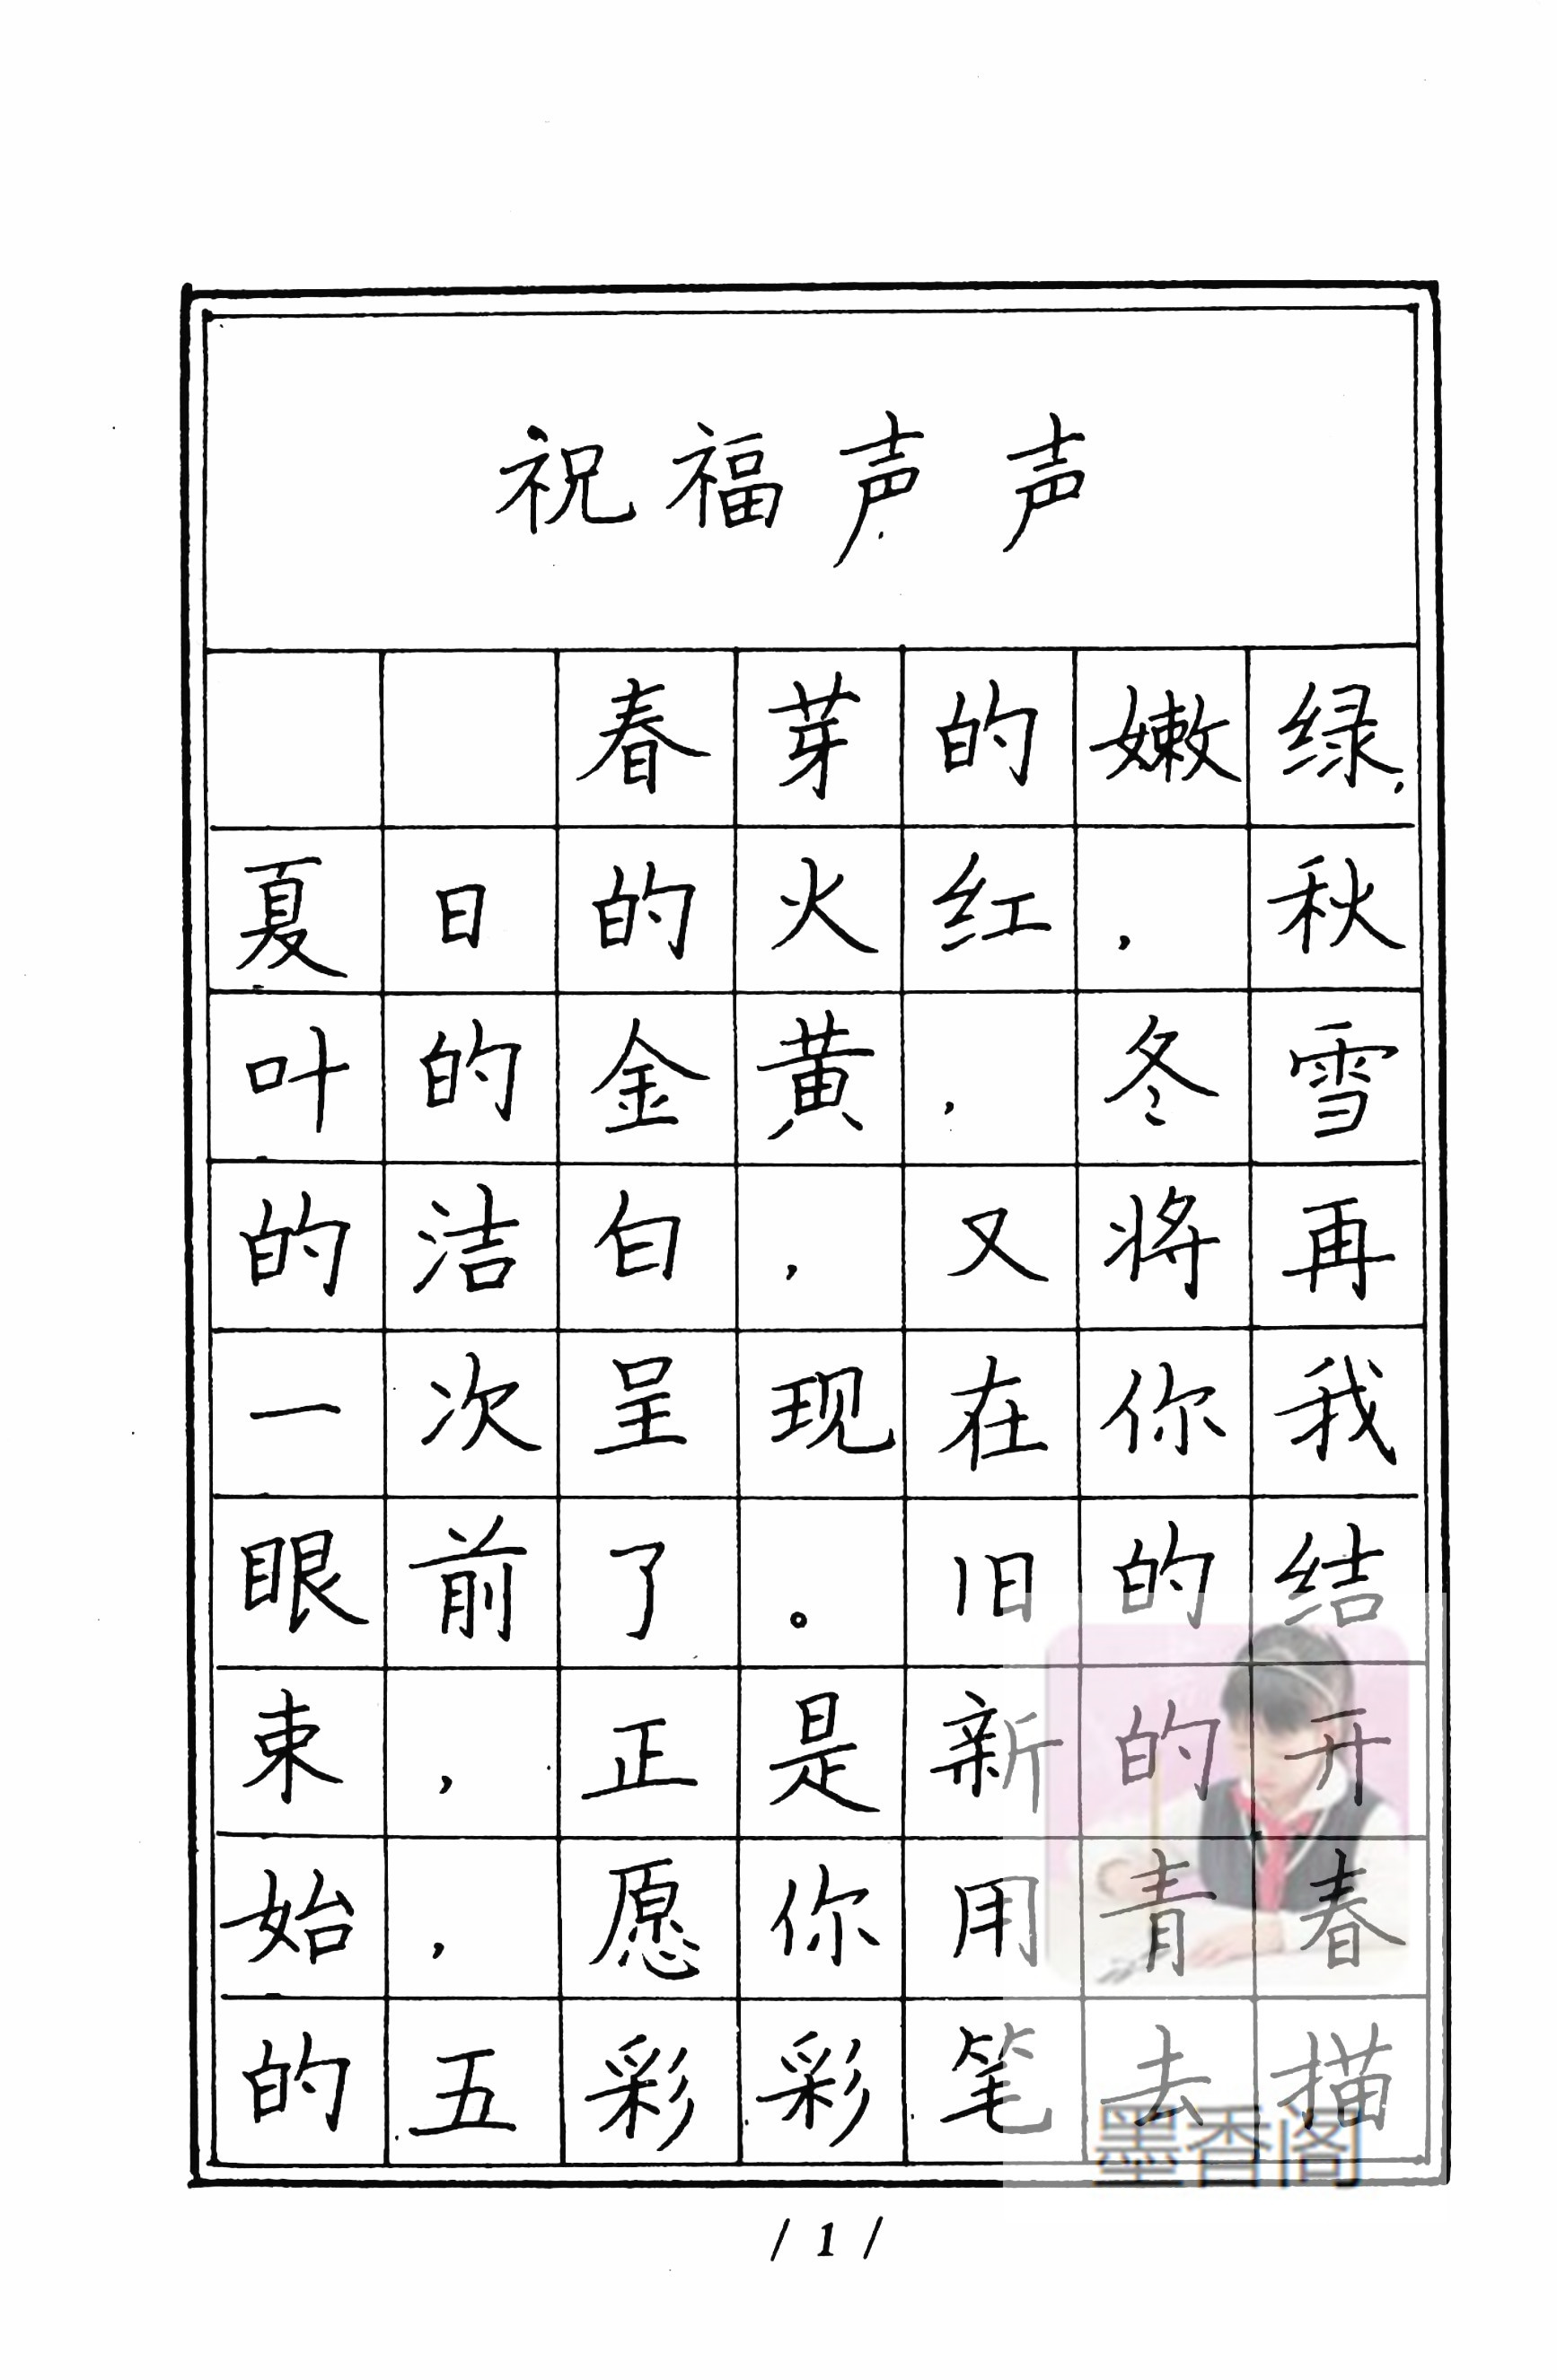 祝福声声
春芽的嫩绿，
夏日的火红，秋
叶的金黄，冬雪
的洁白，又将再
一次呈现在你我
眼前了。旧的结
束，正是新的开
始，愿你用青春
的五彩彩笔去描
墨香阁
/ 1 /